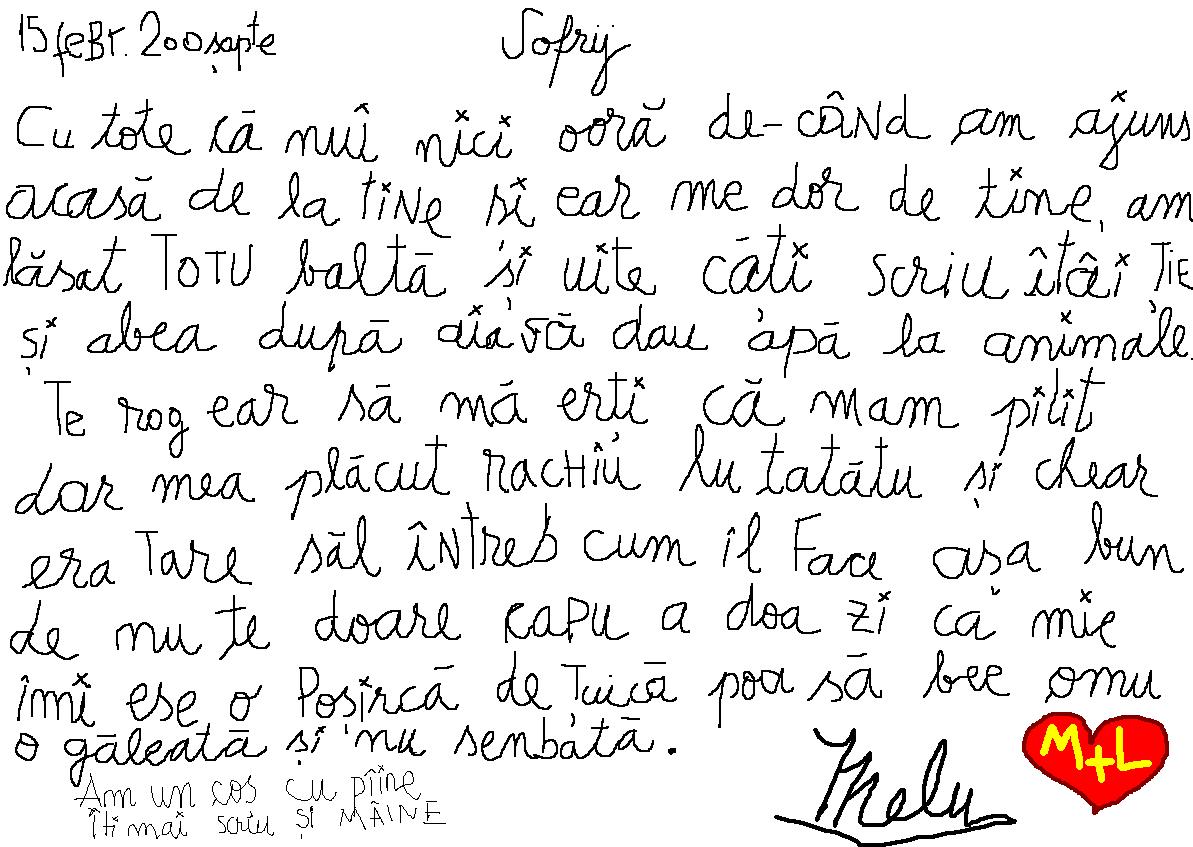 15 feBr. 200șapte Sofrij
Cu tote că nuî nici ooră de-cÂNd am ajuns
acasă de la TiNe si ear me dor de tine, am
lăsat TOTU baltă și uite câti scriu îtâi ȚIE
și abea după aia vă dau apă la animale.
Te rog ear să mă erti că mam pilit
dar mea plăcut RACHIU lu tatătu și chear
era Tare săl ÎNTreb cum îl Face așa bun
de nu te doare CAPU a doa zi că mie
îmi ese o Poșircă de Țuică poa să bee omu
o găleată și nu senbătă.
Am un cos cu pîine
Îti mai scriu ȘI MÂINE
Melu
M+L